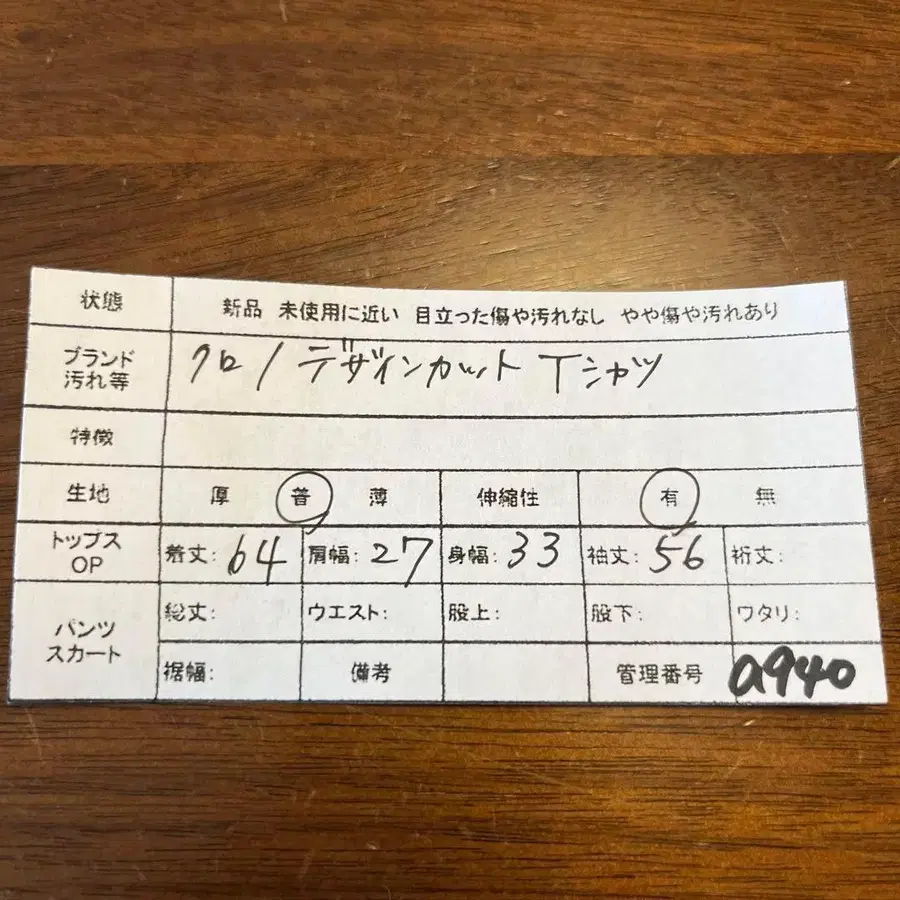 状態 新品 未使用に近い 目立った傷や汚れなし やや傷や汚れあり
ブランド 汚れ等 クロ / デザインカット Tシャツ
特徴
生地 厚 普 薄 伸縮性 有 無
トップス OP 着丈: 64 肩幅: 27 身幅: 33 袖丈: 56 裄丈:
パンツ スカート 総丈: ウエスト: 股上: 股下: ワタリ:
裾幅: 備考 管理番号 a940